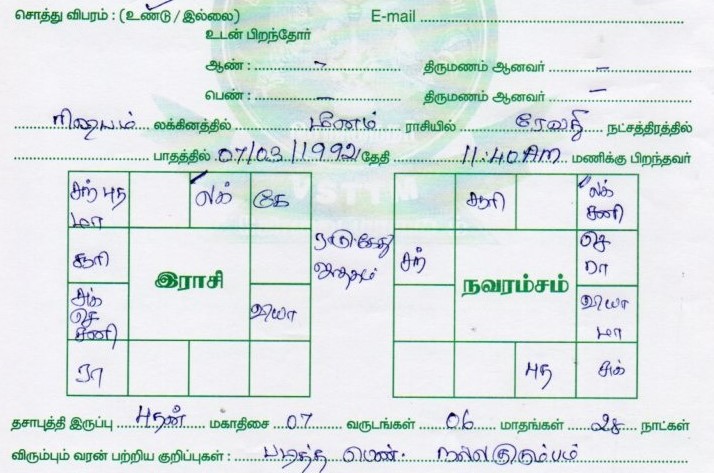 சொத்து விபரம் : (உண்டு / இல்லை) E-mail
உடன் பிறந்தோர்
ஆண் : – திருமணம் ஆனவர் –
பெண் : – திருமணம் ஆனவர் –
ரிஷபம் லக்கினத்தில் மீனம் ராசியில் ரேவதி நட்சத்திரத்தில்
பாதத்தில் 07/03/1992 தேதி 11:40 AM மணிக்கு பிறந்தவர்
சந் புத லக் கே சூரி லக்
மா சனி
சூரி ராகு கேது சந் செ
ஜாதகம் ரா
இராசி நவரம்சம்
சுக் வியா வியா
செ மா
சனி
ரா புத சுக்
தசாபுத்தி இருப்பு புதன் மகாதிசை 07 வருடங்கள் 06 மாதங்கள் 28 நாட்கள்
விரும்பும் வரன் பற்றிய குறிப்புகள் : படித்த பெண். நல்ல குடும்பம்